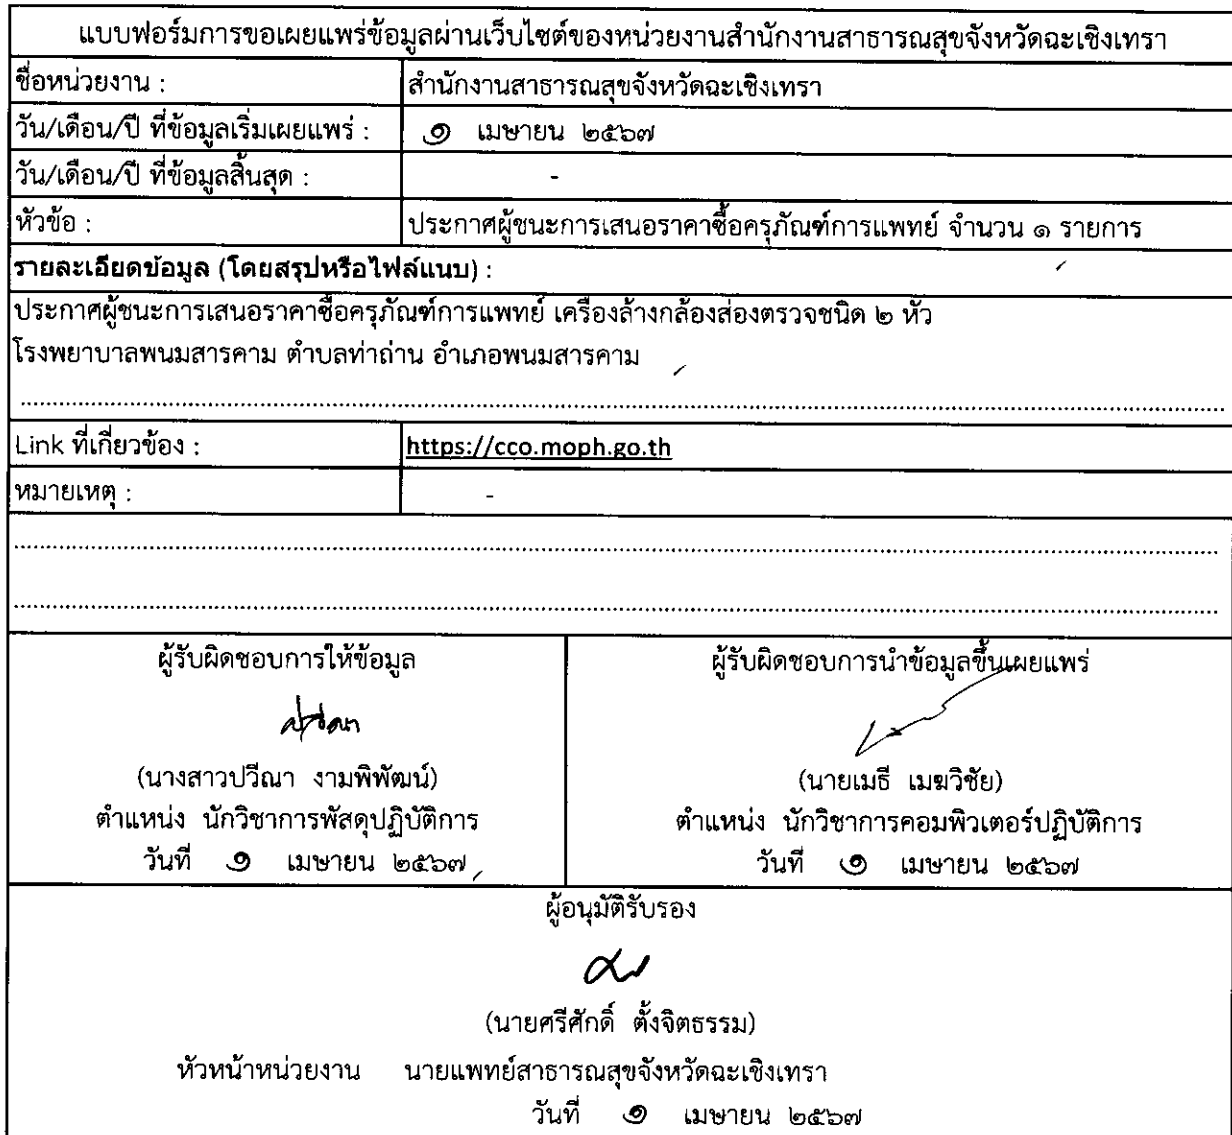 แบบฟอร์มการขอเผยแพร่ข้อมูลผ่านเว็บไซต์ของหน่วยงานสำนักงานสาธารณสุขจังหวัดฉะเชิงเทรา
ชื่อหน่วยงาน : สำนักงานสาธารณสุขจังหวัดฉะเชิงเทรา
วัน/เดือน/ปี ที่ข้อมูลเริ่มเผยแพร่ : ๑ เมษายน ๒๕๖๗
วัน/เดือน/ปี ที่ข้อมูลสิ้นสุด : -
หัวข้อ : ประกาศผู้ชนะการเสนอราคาซื้อครุภัณฑ์การแพทย์ จำนวน ๑ รายการ
รายละเอียดข้อมูล (โดยสรุปหรือไฟล์แนบ) :
ประกาศผู้ชนะการเสนอราคาซื้อครุภัณฑ์การแพทย์ เครื่องล้างกล้องส่องตรวจชนิด ๒ หัว
โรงพยาบาลพนมสารคาม ตำบลท่าถ่าน อำเภอพนมสารคาม
Link ที่เกี่ยวข้อง : https://cco.moph.go.th
หมายเหตุ : -
ผู้รับผิดชอบการให้ข้อมูล
(นางสาวปวีณา งามพิพัฒน์)
ตำแหน่ง นักวิชาการพัสดุปฏิบัติการ
วันที่ ๑ เมษายน ๒๕๖๗
ผู้รับผิดชอบการนำข้อมูลขึ้นเผยแพร่
(นายเมธี เมฆวิชัย)
ตำแหน่ง นักวิชาการคอมพิวเตอร์ปฏิบัติการ
วันที่ ๑ เมษายน ๒๕๖๗
ผู้อนุมัติรับรอง
(นายศรีศักดิ์ ตั้งจิตธรรม)
หัวหน้าหน่วยงาน นายแพทย์สาธารณสุขจังหวัดฉะเชิงเทรา
วันที่ ๑ เมษายน ๒๕๖๗